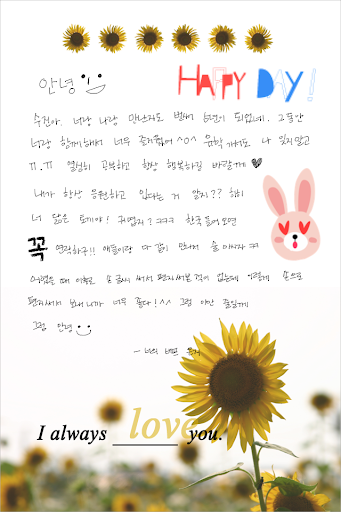 안녕
HAPPY DAY!
수건아. 너랑 나랑 만난지도 벌써 6년이 되었네. 그동안
너랑 함께해서 너무 즐거웠어 ^0^ 유학가서도 나 잊지말고
ㅠ.ㅠ 열심히 공부하고 항상 행복하길 바랄게
내가 항상 응원하고 있다는 거 알지?? 히히
너 닮은 토끼야! 귀엽지? ㅋㅋㅋ 한국 들어오면
꼭 연락하구!! 애들이랑 다 같이 만나서 술 마시자 ㅋㅋ
어렸을 때 이후로 손글씨 써서 편지써본 적이 없는데 이렇게 손으로
편지써서 보내니까 너무 좋다!^^ 그럼 이만 줄일게
그럼 안녕
- 너의 베프
I always love you.